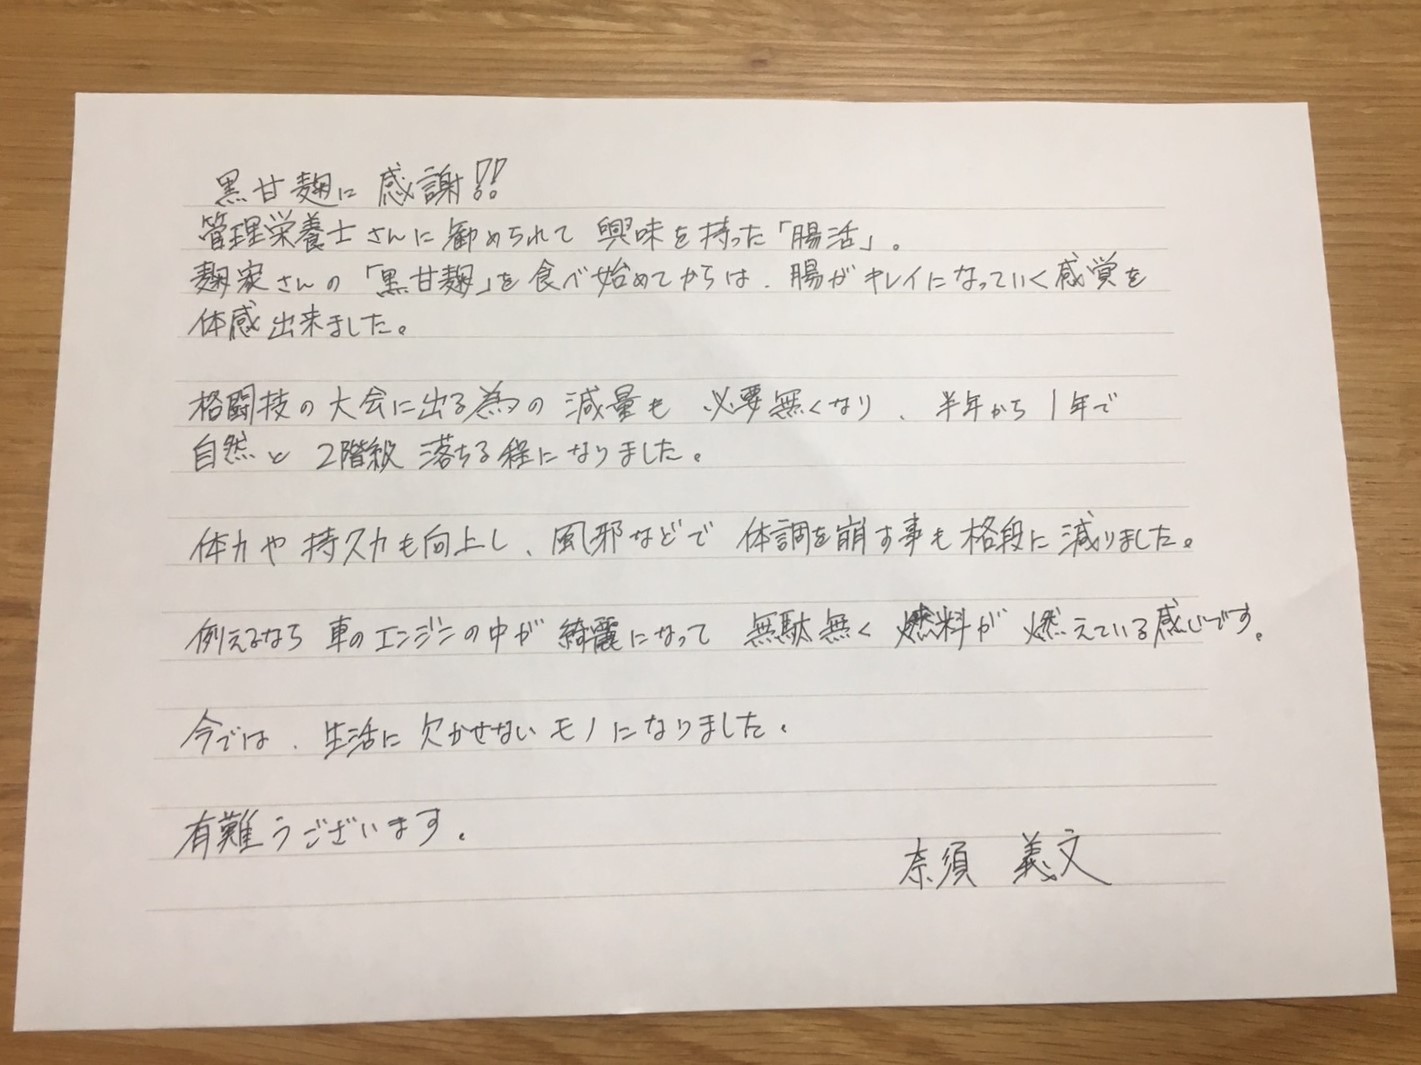 黒甘麹に 感謝!!
管理栄養士さんに勧められて 興味を持った「腸活」。
麹家さんの「黒甘麹」を食べ始めてからは、腸がキレイになっていく感覚を
体感出来ました。
格闘技の大会に出る為の 減量も 必要無くなり、半年から1年で
自然と 2階級 落ちる程になりました。
体力や持久力も向上し、風邪などで 体調を崩す事も格段に減りました。
例えるなら 車のエンジンの中が 綺麗になって 無駄無く 燃料が 燃えている感じです。
今では、生活に欠かせないモノになりました。
有難うございます。
奈須 義文